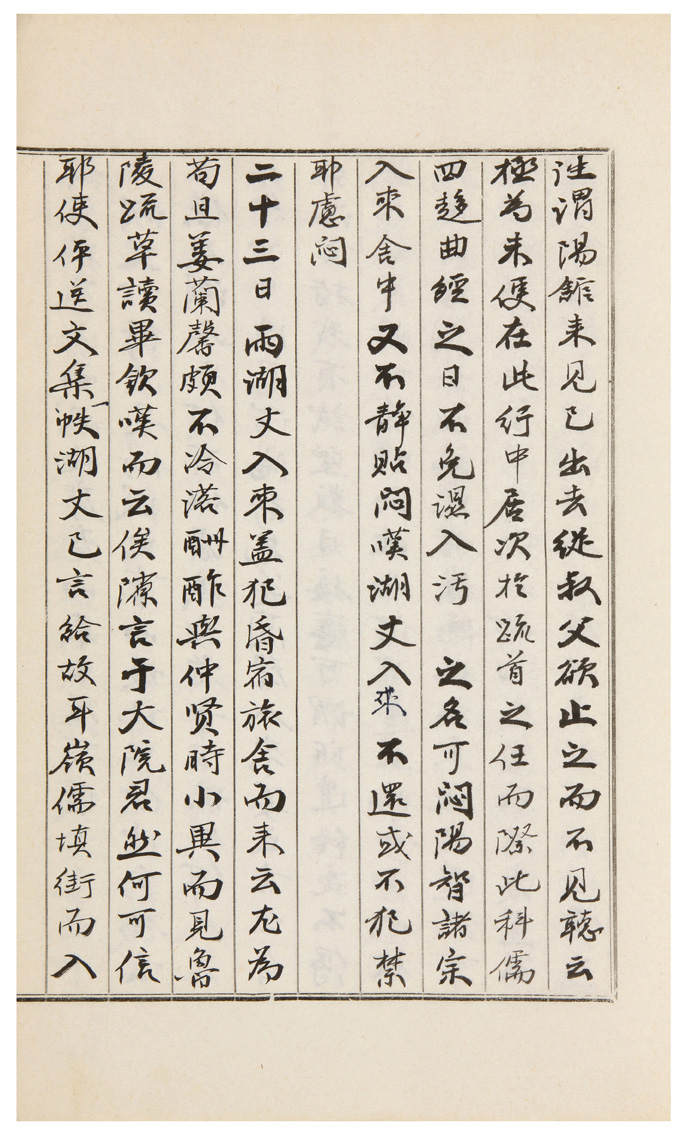 往謂陽館來見已出去從叔父欲止之而不見聽云
極爲未便在此行中居次於疏首之任而際此科儒
四趍曲經之日不免混入污之名可悶陽智諸宗
入來舍中又不靜貼悶嘆湖丈入來不還或不犯禁
耶慮悶
二十三日雨湖丈入來蓋犯昏宿旅舍而來云尤爲
苟且姜蘭馨頗不冷落酬酢與仲賢時小異而見魯
陵疏草讀畢欽嘆而云俟隙言于大院君然何可信
耶使伻送文集一帙湖丈已言給故耳嶺儒塡街而入